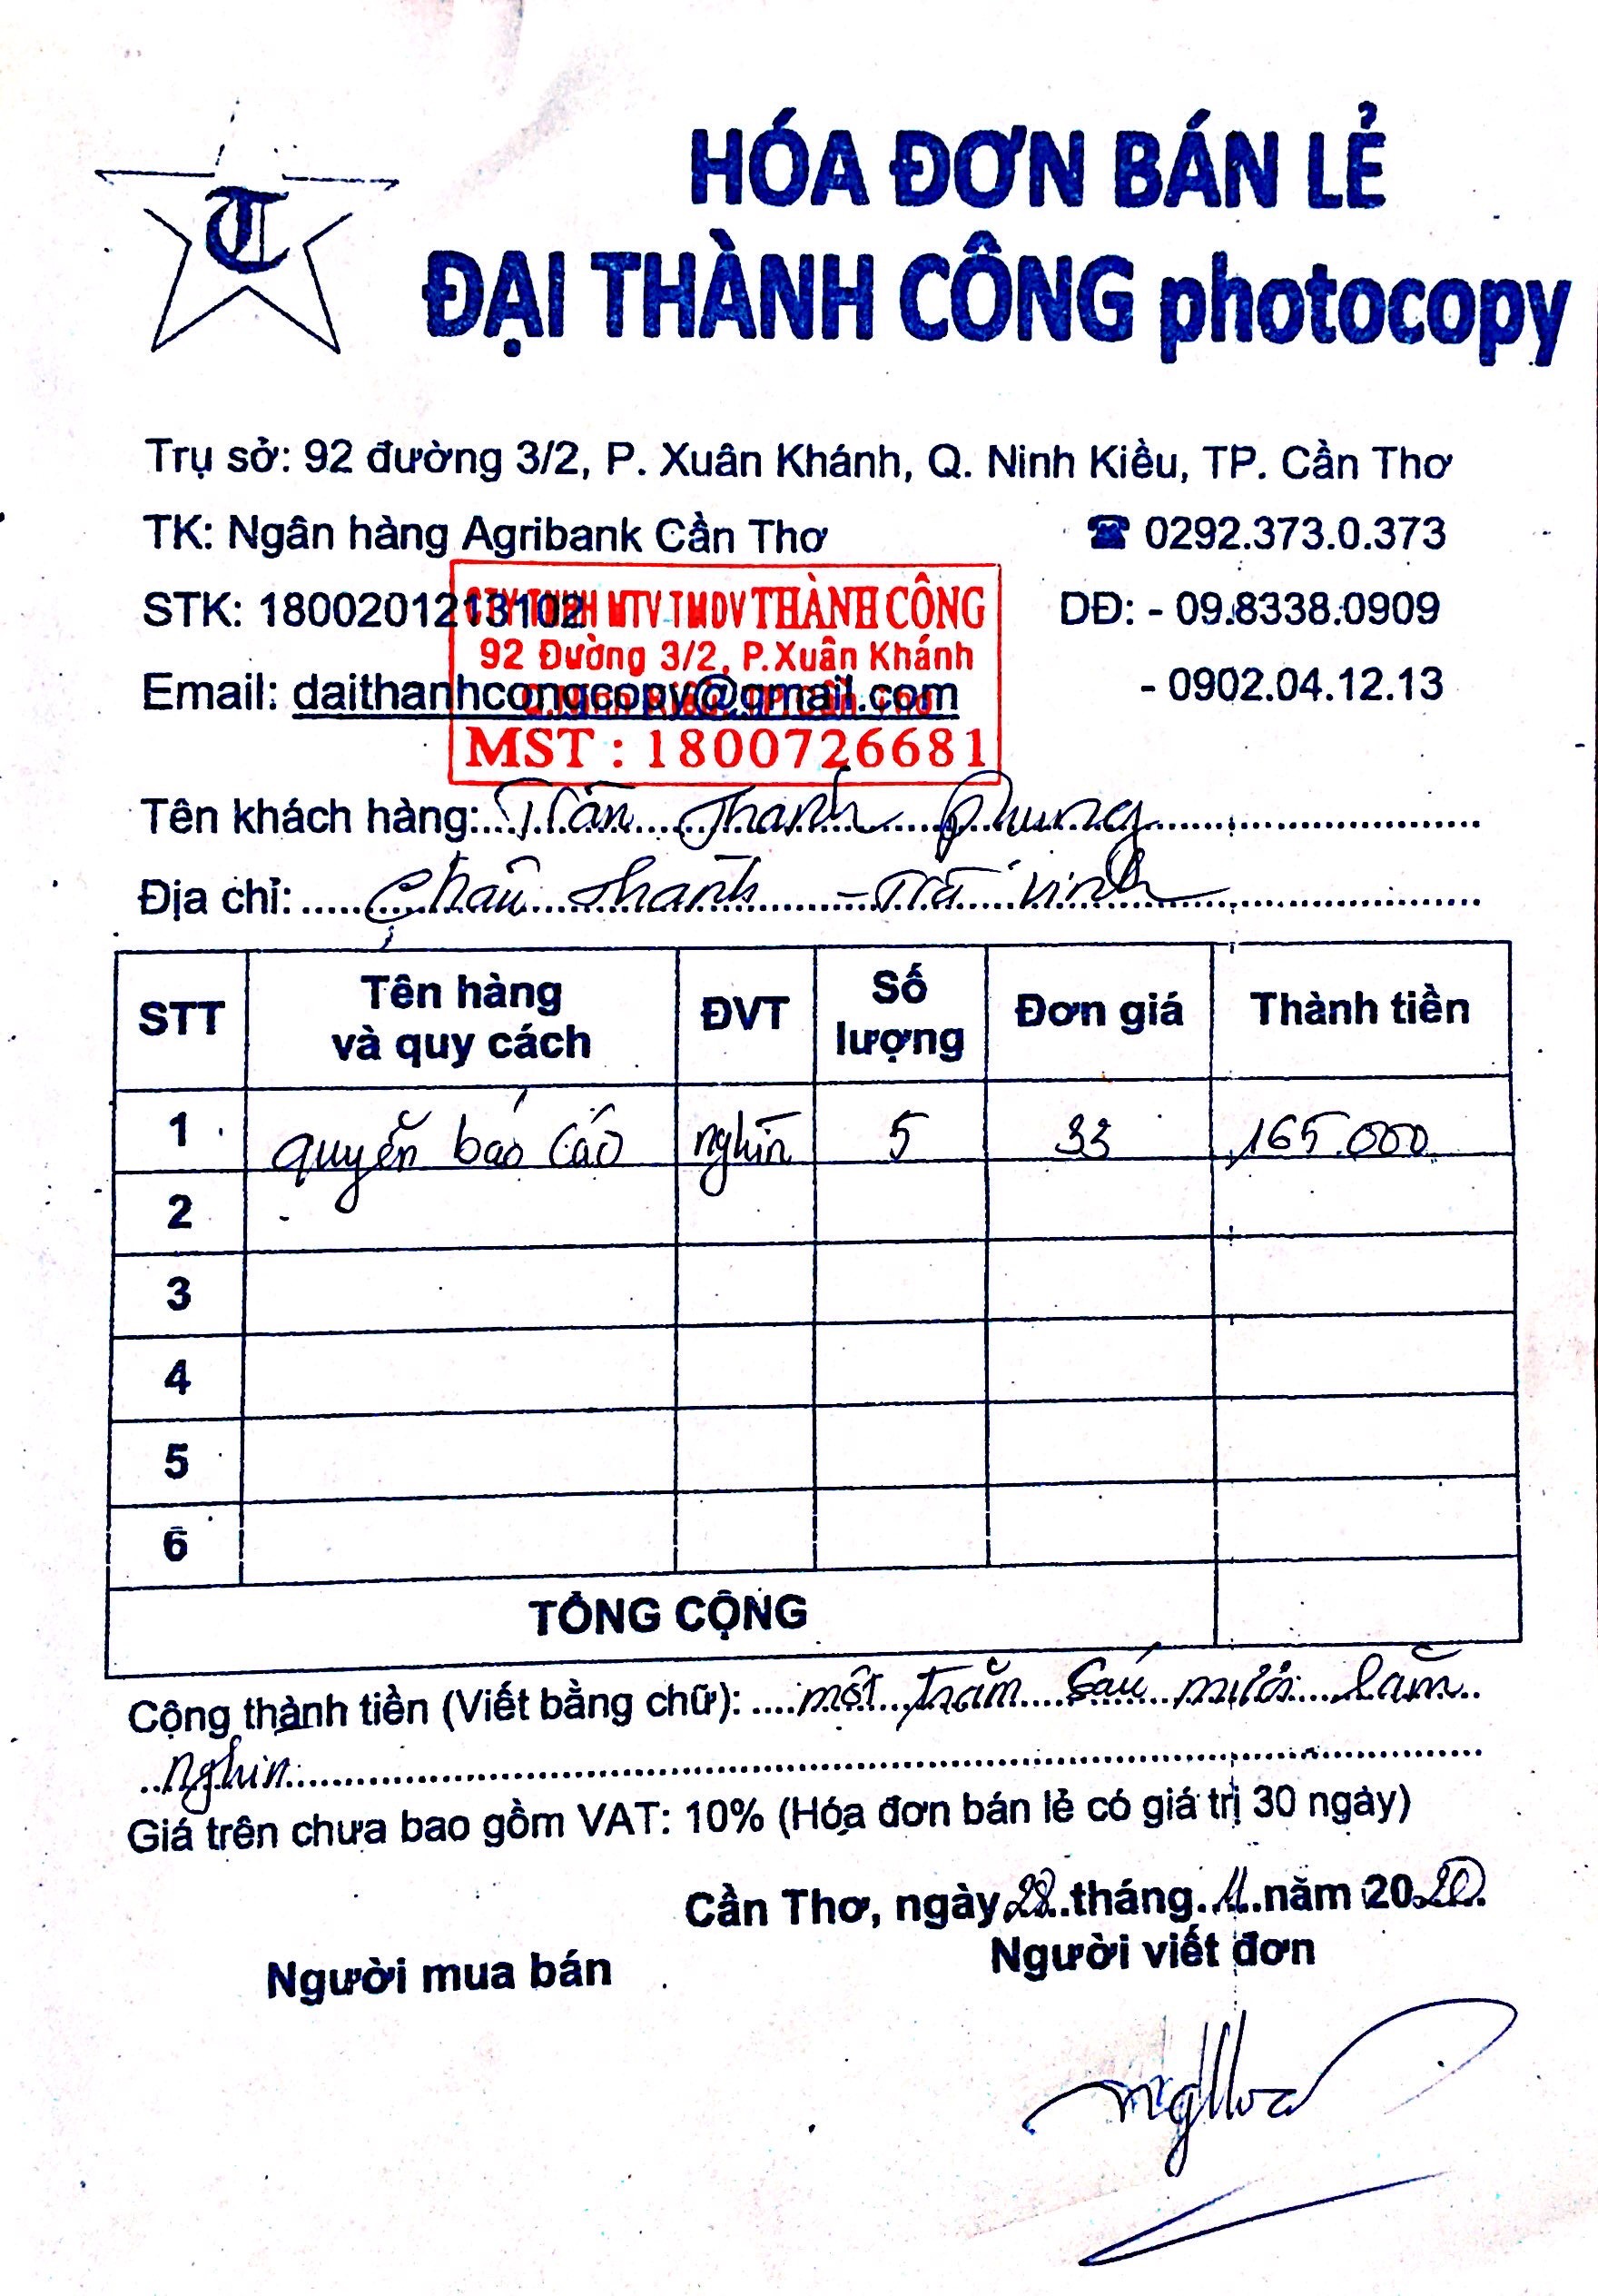 HÓA ĐƠN BÁN LẺ
ĐẠI THÀNH CÔNG photocopy
Trụ sở: 92 đường 3/2, P. Xuân Khánh, Q. Ninh Kiều, TP. Cần Thơ
TK: Ngân hàng Agribank Cần Thơ ☎ 0292.373.0.373
STK: 1800201213102 DĐ: - 09.8338.0909
Email: daithanhcongcopy@gmail.com - 0902.04.12.13
CTY TNHH MTV TMDV THÀNH CÔNG
92 Đường 3/2, P.Xuân Khánh
Q.Ninh Kiều, TP.Cần Thơ
MST : 1800726681
Tên khách hàng: Trần Thanh Phung
Địa chỉ: Châu Thành - Trà Vinh
STT Tên hàng và quy cách ĐVT Số lượng Đơn giá Thành tiền
1 quyển báo cáo nghìn 5 33 165.000
2
3
4
5
6
TỔNG CỘNG
Cộng thành tiền (Viết bằng chữ): một trăm sáu mươi lăm
nghìn
Giá trên chưa bao gồm VAT: 10% (Hóa đơn bán lẻ có giá trị 30 ngày)
Cần Thơ, ngày 28 tháng 11 năm 2020
Người mua bán Người viết đơn